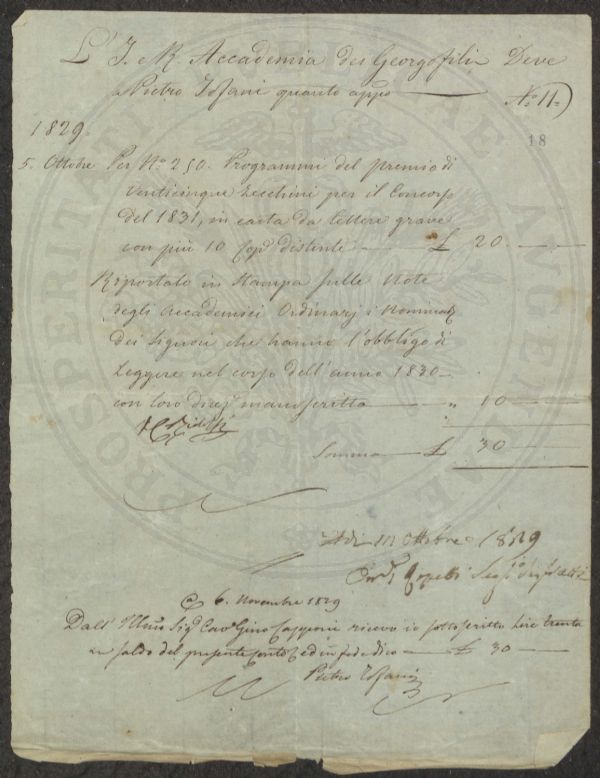 L'I. e R. Accademia dei Georgofili Deve
a Pietro Tofani quanto app.o
N.o 11
18
1829
5. Ottobre Per N.o 250. Programmi del premio di
Venticinque Zecchini per il Concorso
del 1831, in carta da lettere grave
con più 10 Cop.e distinte £ 20
Riportato in Stampa sulle Note
degli Accademici Ordinarj i Nominati
dei Signori che hanno l'obbligo di
Leggere nel corso dell'anno 1830
con loro manoscritto " 10
C. Ridolfi
Somma £ 30
Adi 12 Ottobre 1829
Segr.o degli Atti
6. Novembre 1829
Dall'Ill.mo Sig.r Cav.e Gino Capponi ricevo io sottoscritto Lire trenta
a saldo del presente Conto, ed in fede dico £ 30
Pietro Tofani
PROSPERITATI PUBLICAE AUGENDAE